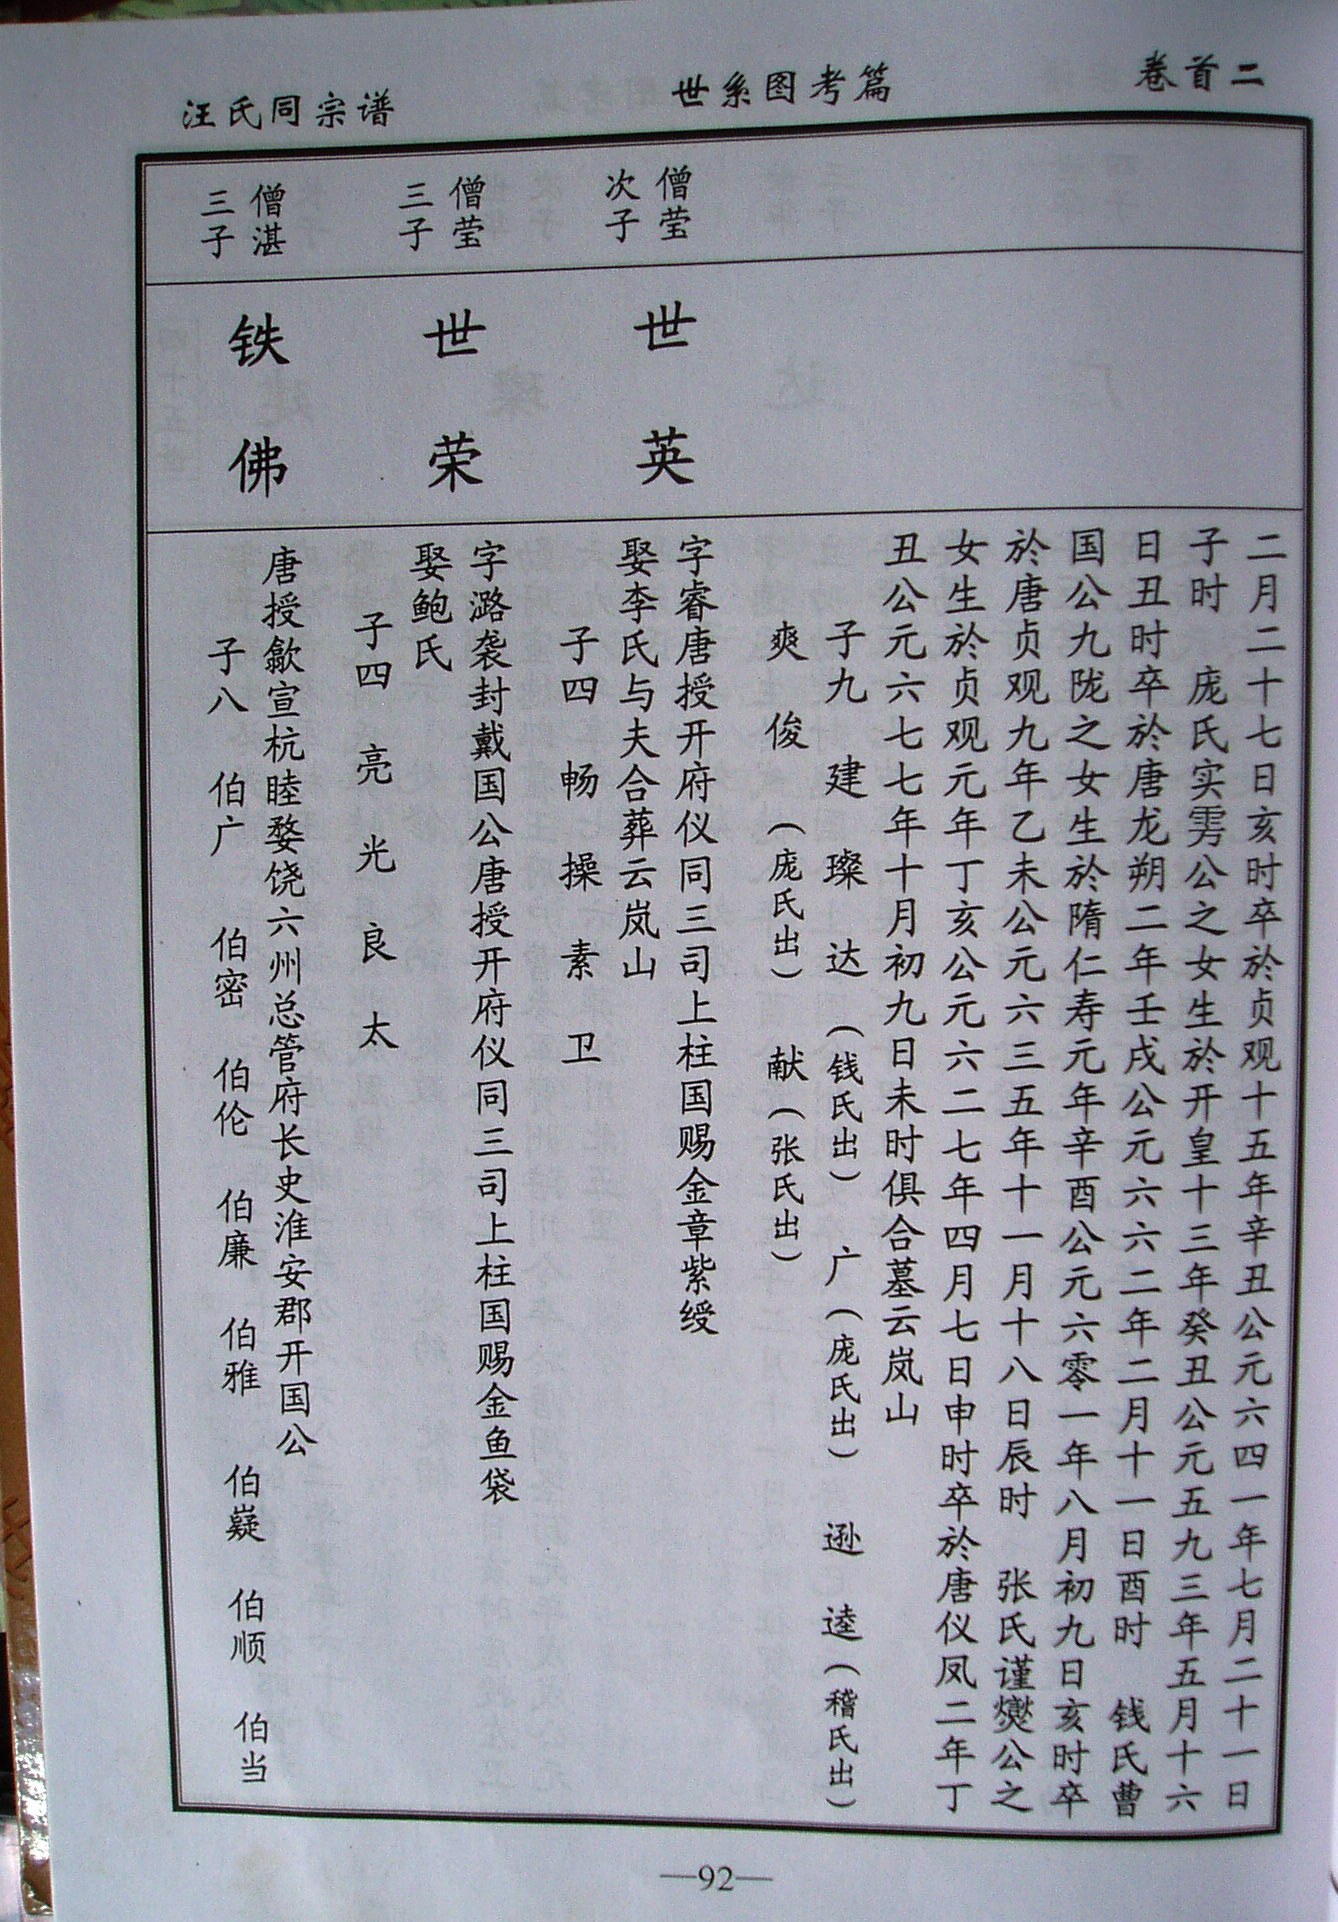 卷首二
世系图考篇
汪氏同宗谱
二月二十七日亥时卒於贞观十五年辛丑公元六四一年七月二十一日
子时　庞氏实雱公之女生於开皇十三年癸丑公元五九三年五月十六
日丑时卒於唐龙朔二年壬戌公元六六二年二月十一日酉时　钱氏曹
国公九陇之女生於隋仁寿元年辛酉公元六零一年八月初九日亥时卒
於唐贞观九年乙未公元六三五年十一月十八日辰时　张氏谨爕公之
女生於贞观元年丁亥公元六二七年四月七日申时卒於唐仪凤二年丁
丑公元六七七年十月初九日未时俱合墓云岚山
子九　建　璨　达　（钱氏出）　广（庞氏出）　逊　逵（稽氏出）
爽　俊　（庞氏出）　献（张氏出）
僧莹
次子
世英
字睿唐授开府仪同三司上柱国赐金章紫绶
娶李氏与夫合葬云岚山
子四　畅　操　素　卫
僧莹
三子
世荣
字潞袭封戴国公唐授开府仪同三司上柱国赐金鱼袋
娶鲍氏
子四　亮　光　良　太
僧湛
三子
铁佛
唐授歙宣杭睦婺饶六州总管府长史淮安郡开国公
子八　伯广　伯密　伯伦　伯廉　伯雅　伯嶷　伯顺　伯当
—92—